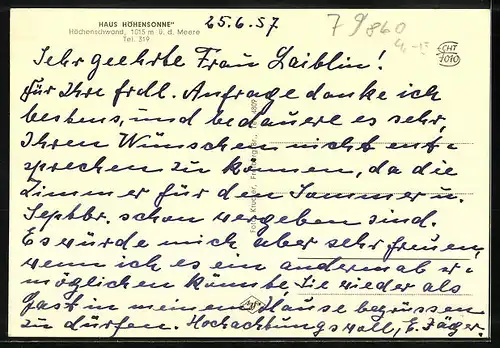 HAUS HÖHENSONNE"
Höchenschwand, 1015 m ü. d. Meere
Tel. 319
25.6.57
79860
CHT
7010
Sehr geehrte Frau Laiblin!
Für Ihre frdl. Anfrage danke ich
bestens, und bedauere es sehr,
Ihren Wünschen nicht ent-
sprechen zu können, da die
Zimmer für den Sommer u.
Septbr. schon vergeben sind.
Es würde mich aber sehr freuen,
wenn ich es ein andermal er-
möglichen könnte, Sie wieder als
Gast in meinem Hause begrüssen
zu dürfen. Hochachtungsvoll, E. Jäger.